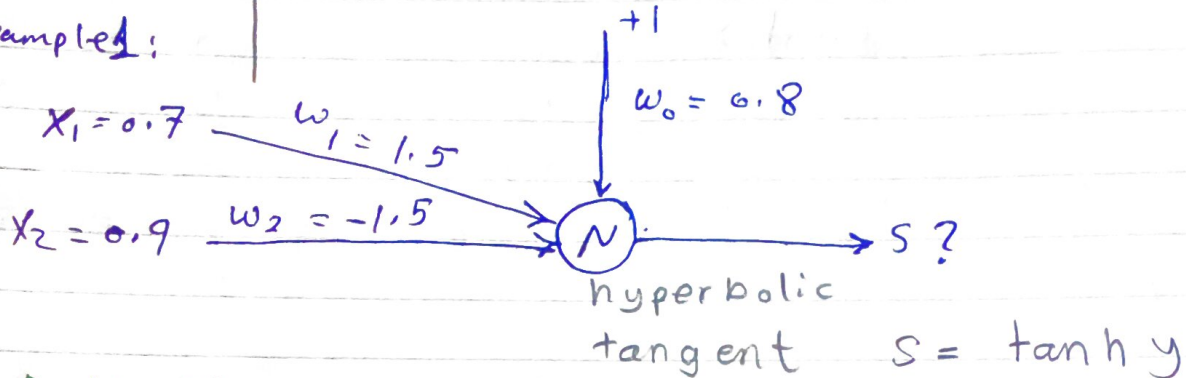 ampled:
+1
w₀ = 0.8
X₁ = 0.7
w₁ = 1.5
X₂ = 0.9
w₂ = -1.5
N
S ?
hyperbolic
tangent
S = tanh y